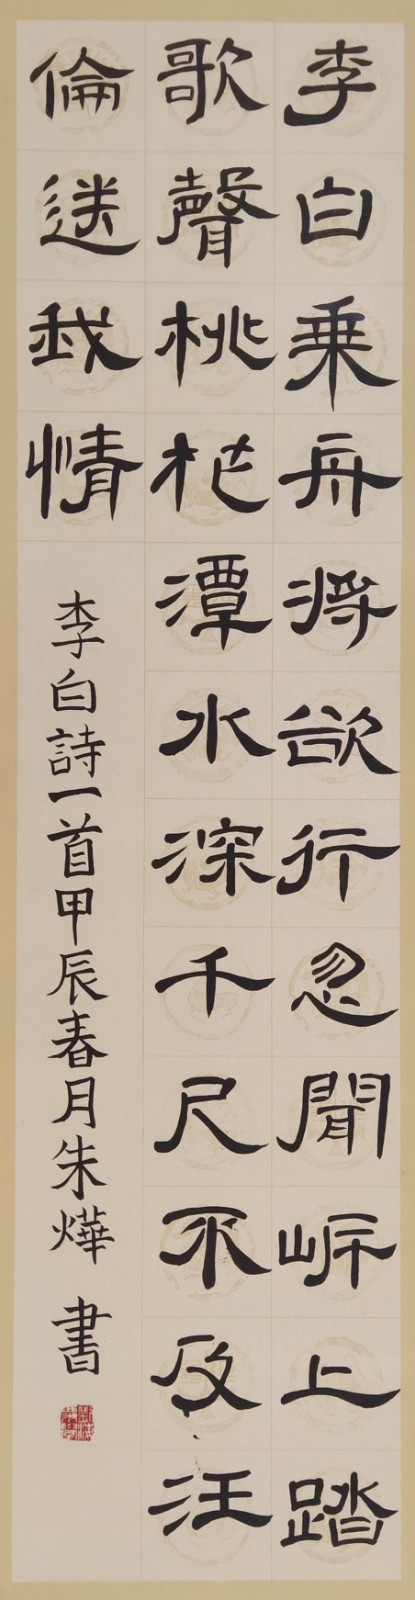 李白乗舟將欲行忽聞岸上踏
歌聲桃花潭水深千尺不及汪
倫送我情
李白詩一首甲辰春月朱燁書